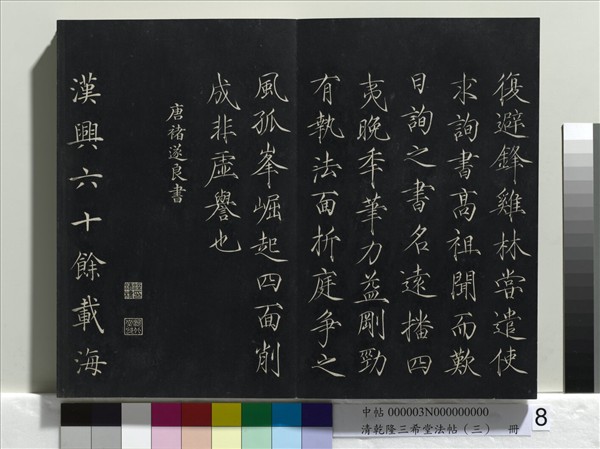 復避鋒雞林當遣使
求詢書高祖聞而歎
曰詢之書名遠播四
夷晚年筆力益剛勁
有執法面折庭爭之
風孤峯崛起四面削
成非虛譽也
唐褚遂良書
漢興六十餘載海
中帖 000003N000000000
清乾隆三希堂法帖（三） 冊
8